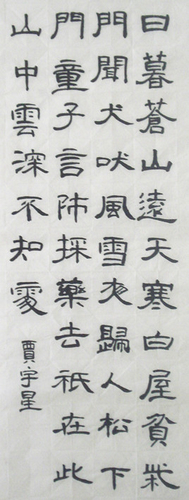 日暮蒼山遠天寒白屋貧柴
門聞犬吠風雪夜歸人松下
問童子言師採藥去祇在此
山中雲深不知處
賈宇星